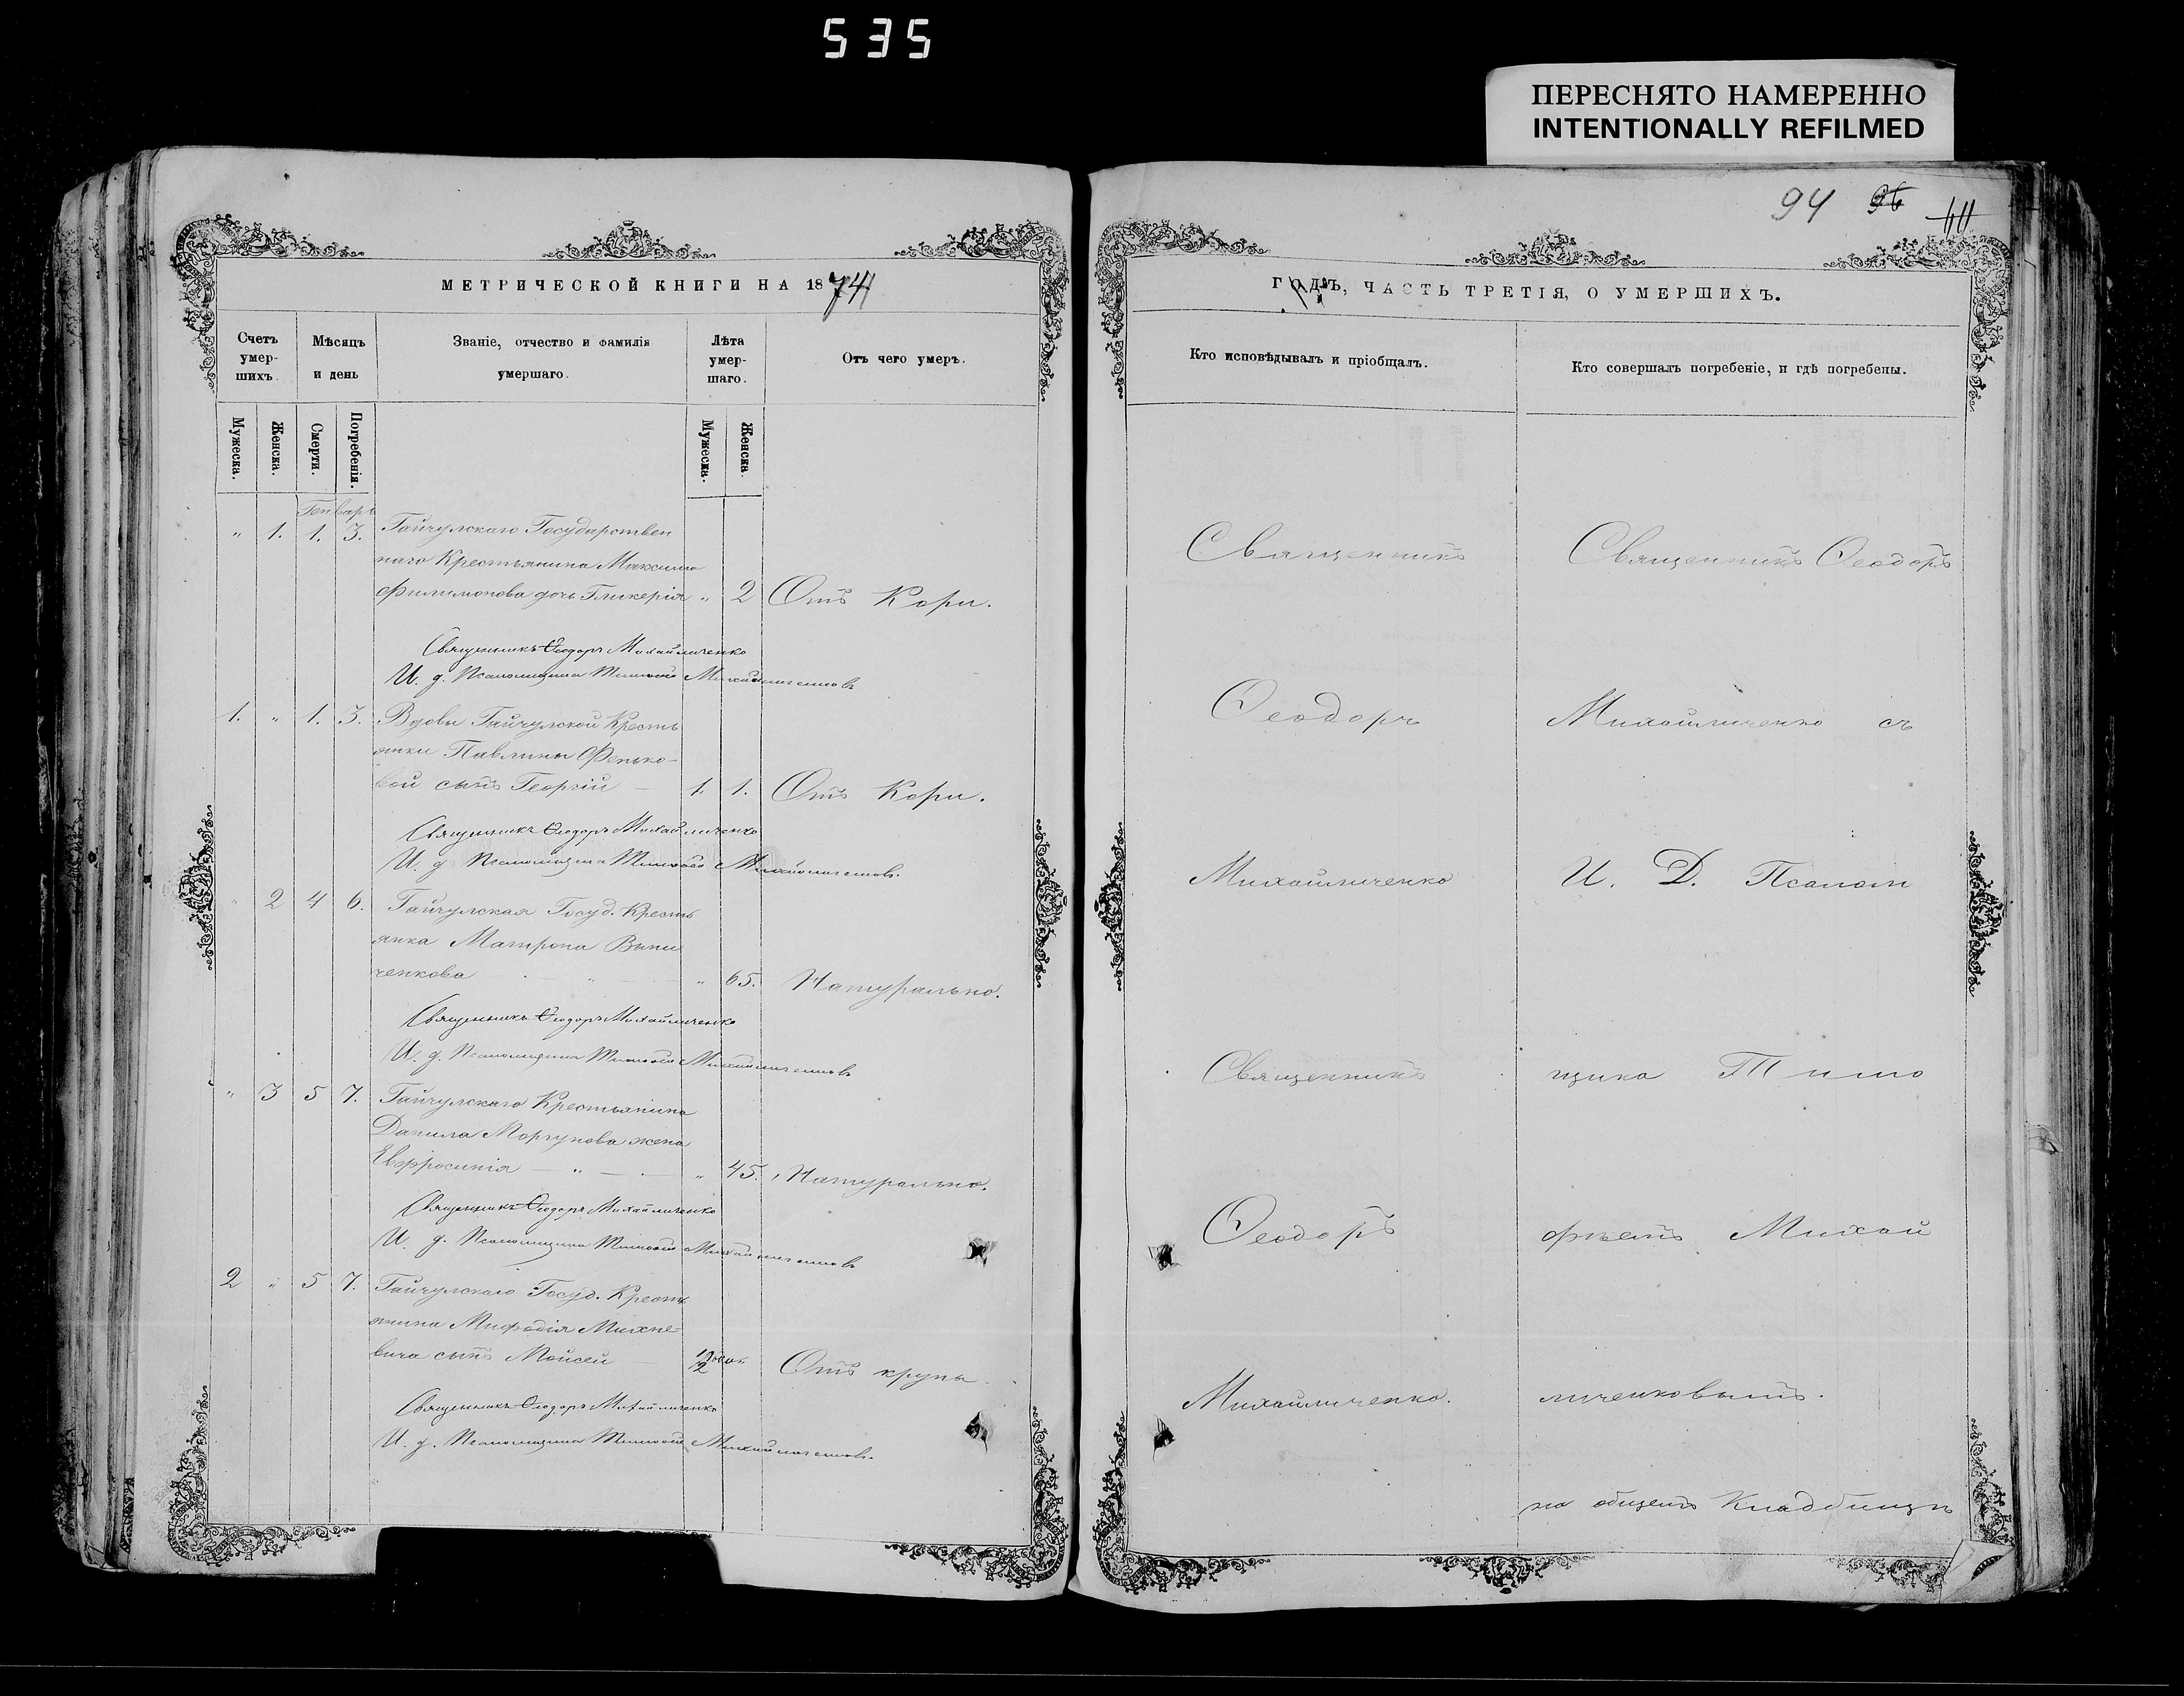 535
ПЕРЕСНЯТО НАМЕРЕННО
INTENTIONALLY REFILMED
94 96
МЕТРИЧЕСКОЙ КНИГИ НА 1874
Счетъ умер-шихъ.
Мѣсяцъ и день
Званіе, отчество и фамилія умершаго.
Лѣта умер-шаго.
Отъ чего умеръ.
Мужеска.
Женска.
Смерти.
Погребенія.
Мужеска.
Женска
Генварь
" 1. 1. 3. Гайчулскаго Государствен
наго Крестьянина Максима
Филимонова дочь Гликерія " 2 Отъ Кори.
Священникъ Ѳеодоръ Михайличенко
И. д. Псаломщика Тимоѳей Михайличенковъ
1. " 1. 3. Вдовы Гайчулской Кресть
янки Павлины Фенько-
вой сынъ Георгій 1. 1. Отъ Кори.
Священникъ Ѳеодоръ Михайличенко
И. д. Псаломщика Тимоѳей Михайличенковъ.
" 2 4 6. Гайчулская Госуд. Кресть
янка Матрона Вини
ченкова " 65. Натурально.
Священникъ Ѳеодоръ Михайличенко
И. д. Псаломщика Тимоѳей Михайличенковъ
" 3 5 7. Гайчулскаго Крестьянина
Данила Моргунова жена
Евфросинія " 45. Натурально.
Священникъ Ѳеодоръ Михайличенко
И. д. Псаломщика Тимоѳей Михайличенковъ
2 " 5 7. Гайчулскаго Госуд. Кресть
янина Мифодія Михне-
вича сынъ Моисей Отъ крупа.
Священникъ Ѳеодоръ Михайличенко
И. д. Псаломщика Тимоѳей Михайличенковъ.
ГОДЪ, ЧАСТЬ ТРЕТІЯ, О УМЕРШИХЪ.
Кто исповѣдывалъ и пріобщалъ.
Кто совершалъ погребеніе, и гдѣ погребены.
Священникъ
Ѳеодоръ
Михайличенко
Священникъ
Ѳеодоръ
Михайличенко.
Священникъ Ѳеодоръ
Михайличенко съ
И. Д. Псалом
щика Тимо
фѣемъ Михай
личенковымъ.
на общемъ Кладбищѣ